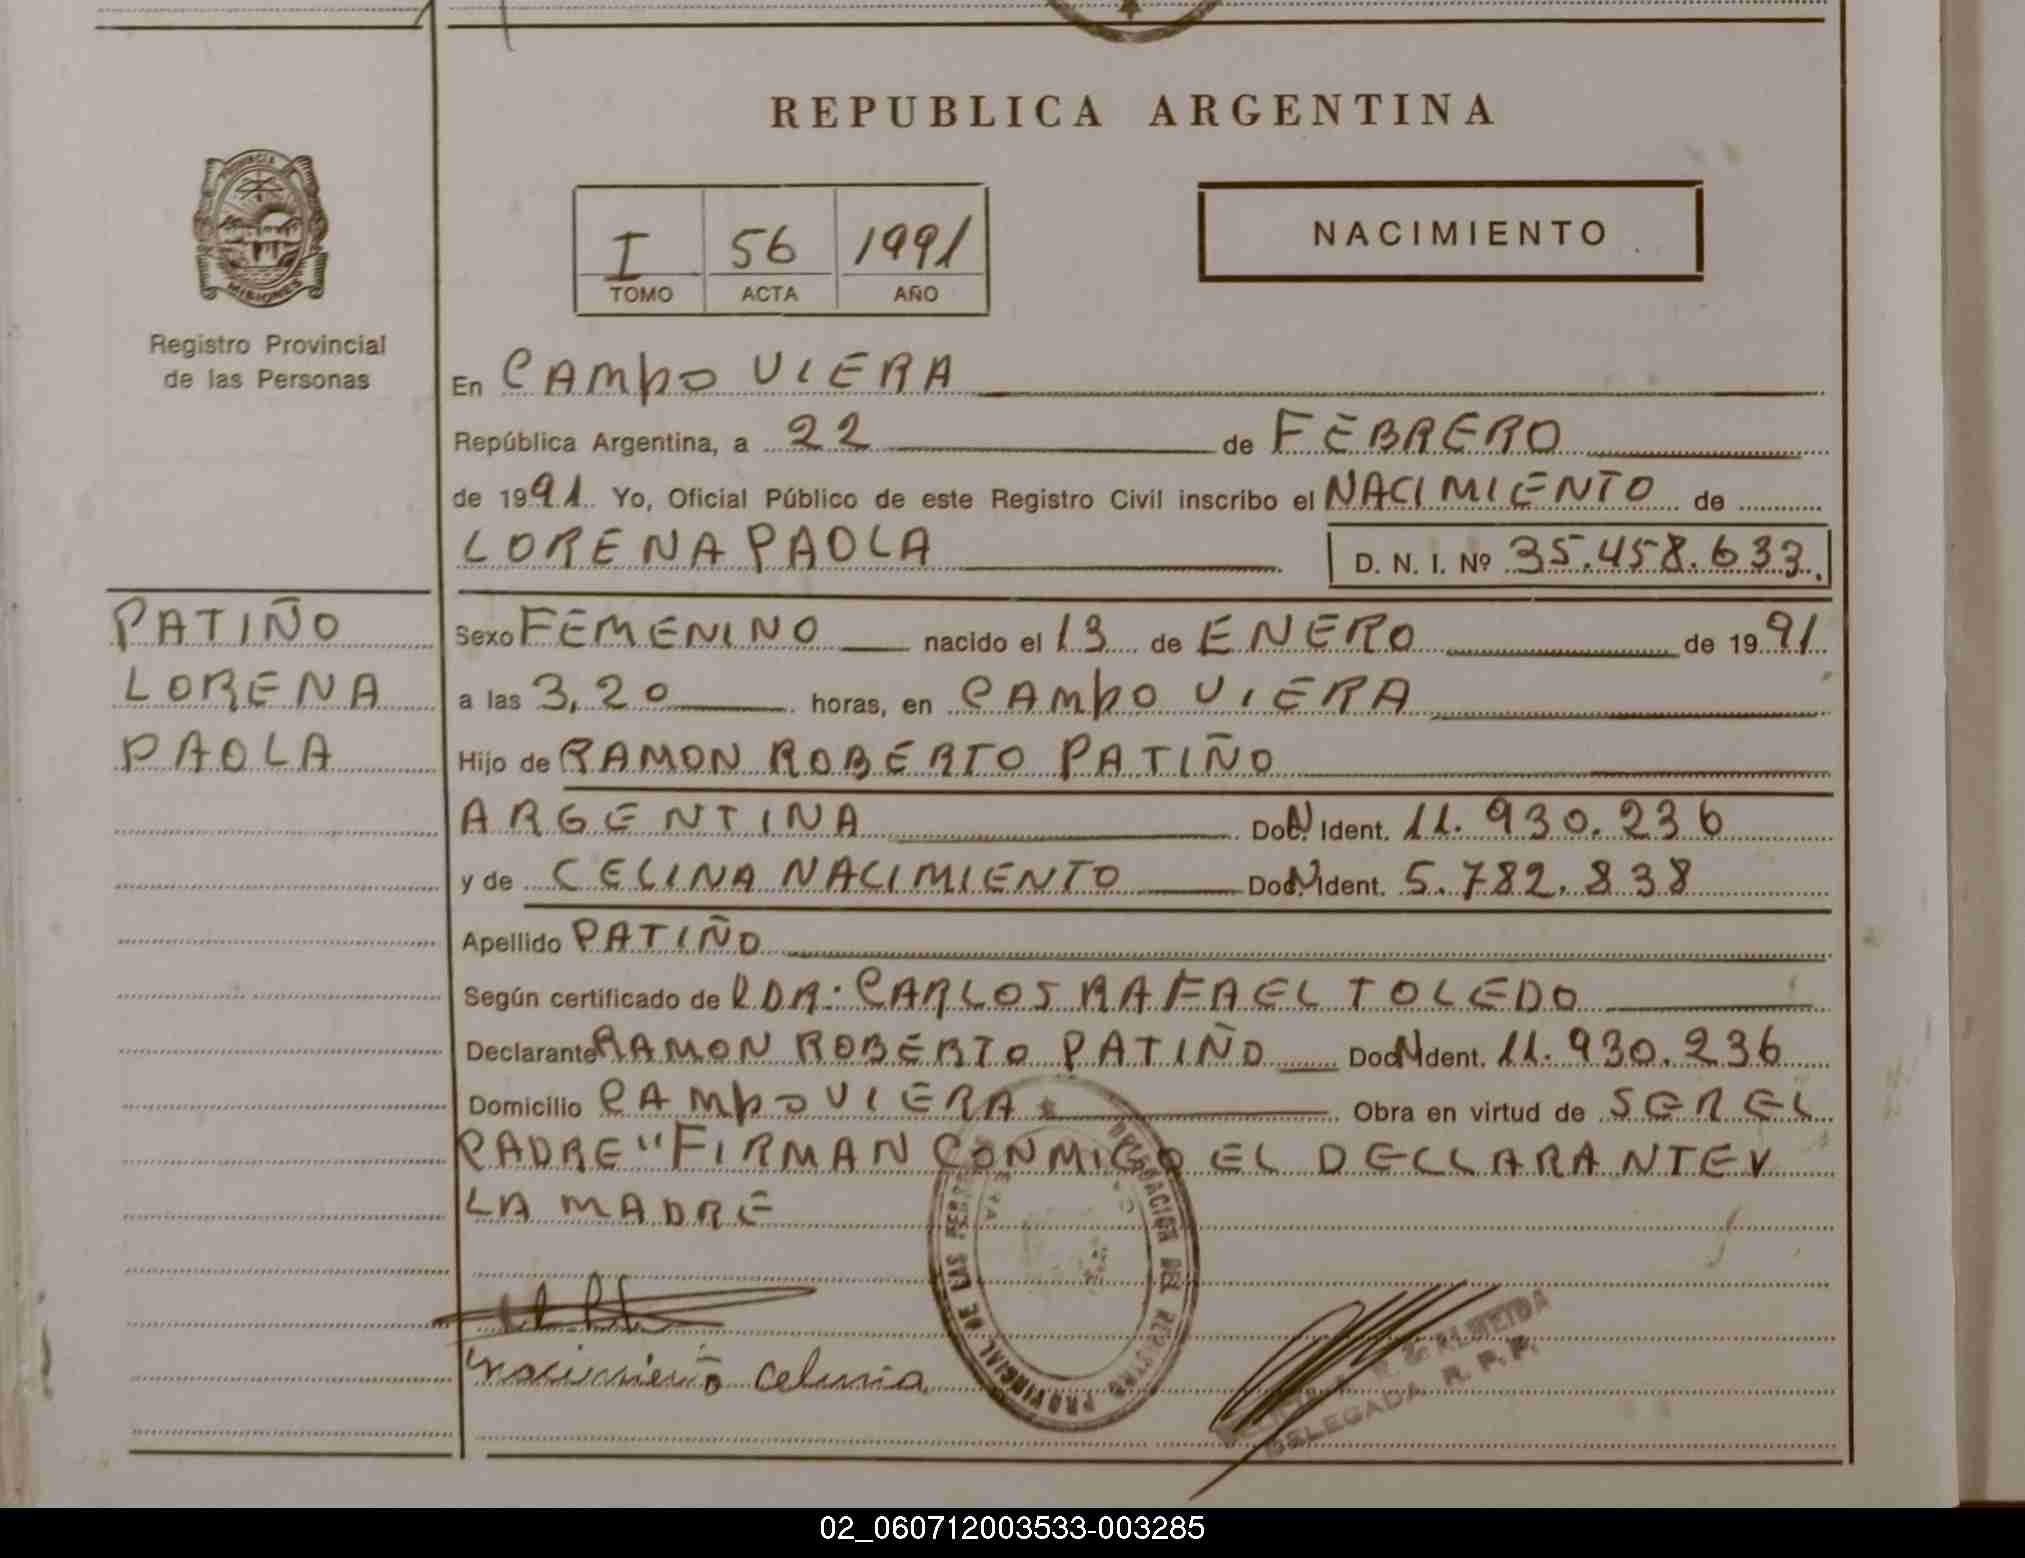 REPUBLICA ARGENTINA
PROVINCIA
MISIONES
Registro Provincial
de las Personas
I 56 1991
TOMO ACTA AÑO
NACIMIENTO
En CAMPO VIERA
República Argentina, a 22 de FEBRERO
de 1991 Yo, Oficial Público de este Registro Civil inscribo el NACIMIENTO de
LORENA PAOLA D. N. I. Nº 35.458.633.
PATIÑO
LORENA
PAOLA
Sexo FEMENINO nacido el 13 de ENERO de 1991
a las 3,20 horas, en CAMPO VIERA
Hijo de RAMON ROBERTO PATIÑO
ARGENTINA Doc. N Ident. 11.930.236
y de CELINA NACIMIENTO Doc. N Ident. 5.782.838
Apellido PATIÑO
Según certificado de CARLOS RAFAEL TOLEDO
Declarante RAMON ROBERTO PATIÑO Doc. N Ident. 11.930.236
Domicilio CAMPO VIERA Obra en virtud de SER EL
PADRE "FIRMAN CONMIGO EL DECLARANTE Y
LA MADRE
DELEGACION DEL REGISTRO PROVINCIAL DE LAS
Nacimiento Celinia
ALMEIDA
DELEGADA R. P. P.
02_060712003533-003285